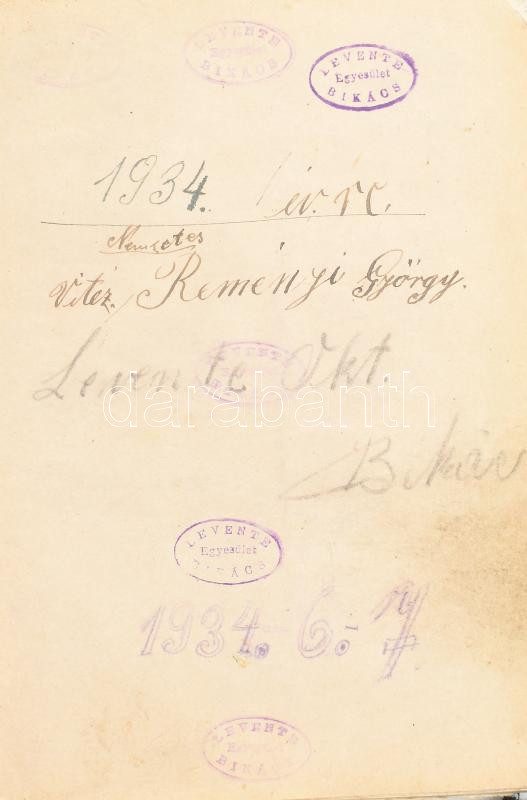 LEVENTE
Egyesület
BIKÁCS
LEVENTE
Egyesület
BIKÁCS
1934. évre.
Nemzetes
Vitéz. Reményi György.
LEVENTE
Levente Okt.
darabanth
Bikács
LEVENTE
Egyesület
BIKÁCS
1934. 6.
LEVENTE
Egyesület
BIKÁCS